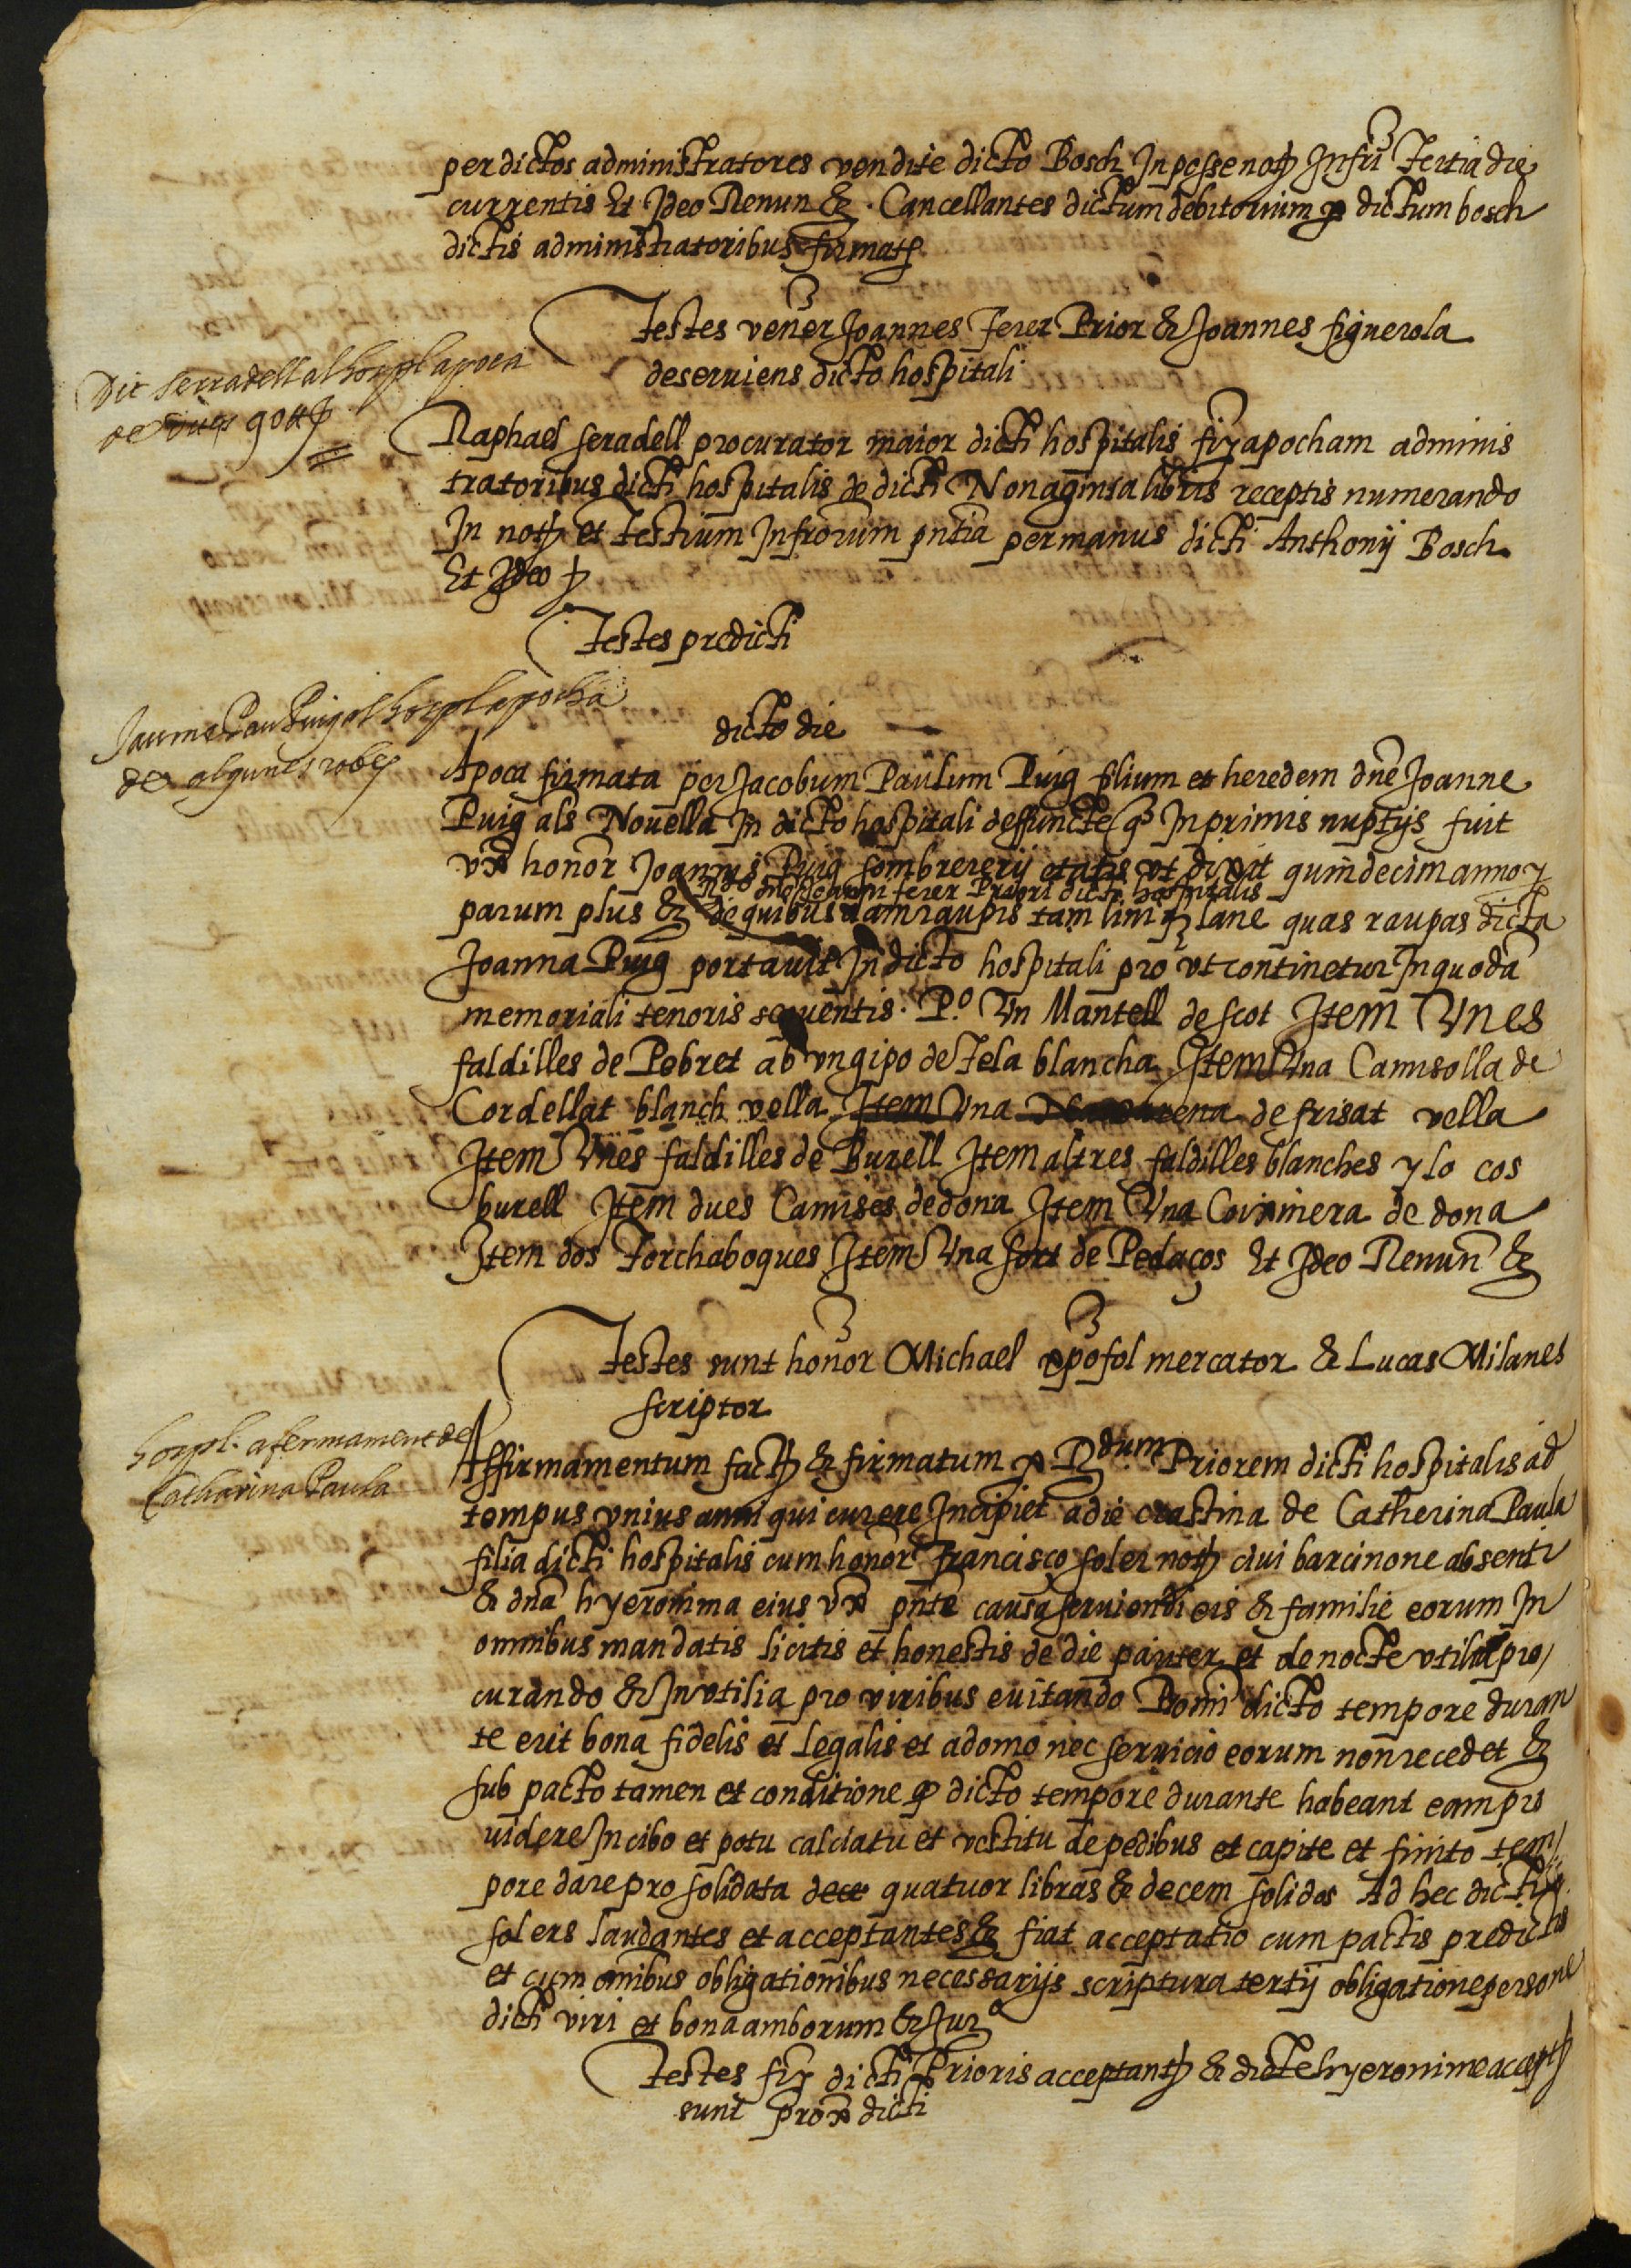 per dictos administratores vendite dicto Bosch In posse not Infri Tertia die
currentis Et Ideo Renun &. Cancellantes dictum debitorium p dictum bosch
dictis administratoribus firmat
Testes vener Joannes Ferer Prior & Joannes figuerola
deseruiens dicto hospitali
Dit Serradell al hospl apoca
de
Raphael seradell procurator maior dicti hospitalis fir apocham adminis
tratoribus dicti hospitalis de dicti Nonaginta libris receptis numerando
In not et testium Infrorum pntia per manus dicti Anthonij Bosch
Et Ideo
Testes predicti
Jaume Pau Puig al hospl apocha
de algunes robes
dicto die
Apoca firmata per Jacobum Paulum Puig filium et heredem dne Joanne
Puig als Nouella In dicto hospitali deffuncte q In primis nuptijs fuit
vx honor Joannis Puig sombrererij etatis vt dixit quindecim anno
Rdo dno Ferer Priori dicti hospitalis
parum plus & de quibus raupis tam lini q lane quas raupas dicta
Joanna Puig portauit In dicto hospitali pro vt continetur In quoda
memoriali tenoris sequentis. P.º Vn Mantell de scot Item Vnes
faldilles de Pebret ab vn gipo de Tela blancha Item Vna Camisolla de
Cordellat blanch vella Item Vna de frisat vella
Item Vnes faldilles de Burell Item altres faldilles blanches y lo cos
burell Item dues Camises de dona Item Vna Coixinera de dona
Item dos Torchaboques Item Vna sort de Pedaços Et Ideo Renun &
Testes sunt honor Michael xpofol mercator & Lucas Milanes
scriptor
hospl. afermament de
Catharina Paula
Affirmamentum fact & firmatum p Rdum Priorem dicti hospitalis ad
tempus vnius anni qui curere Incipiet a die crastina de Catherina Paula
filia dicti hospitalis cum honor Francisco soler not ciui barcinone absenti
& dna hyeronima eius vx pnte causa seruiendi eis & familie eorum In
omnibus mandatis licitis et honestis de die pariter et de nocte vtilia pro
curando & Inutilia pro viribus euitando Promi dicto tempore duran
te erit bona fidelis et legalis et a domo nec seruicio eorum non recedet &
sub pacto tamen et conditione q dicto tempore durante habeant eam pro
uidere In cibo et potu calciatu et vestitu de pedibus et capite et finito tem
pore dare pro solidata dece quatuor libras & decem solidos Ad hec dicti
solers laudantes et acceptantes & fiat acceptatio cum pactis predictis
et cum omibus obligationibus necessarijs scriptura tertij obligatione persone
dicti viri et bona amborum & Jur
Testes fir dicti Prioris acceptant & dicte hyeronime accept
sunt prox dicti